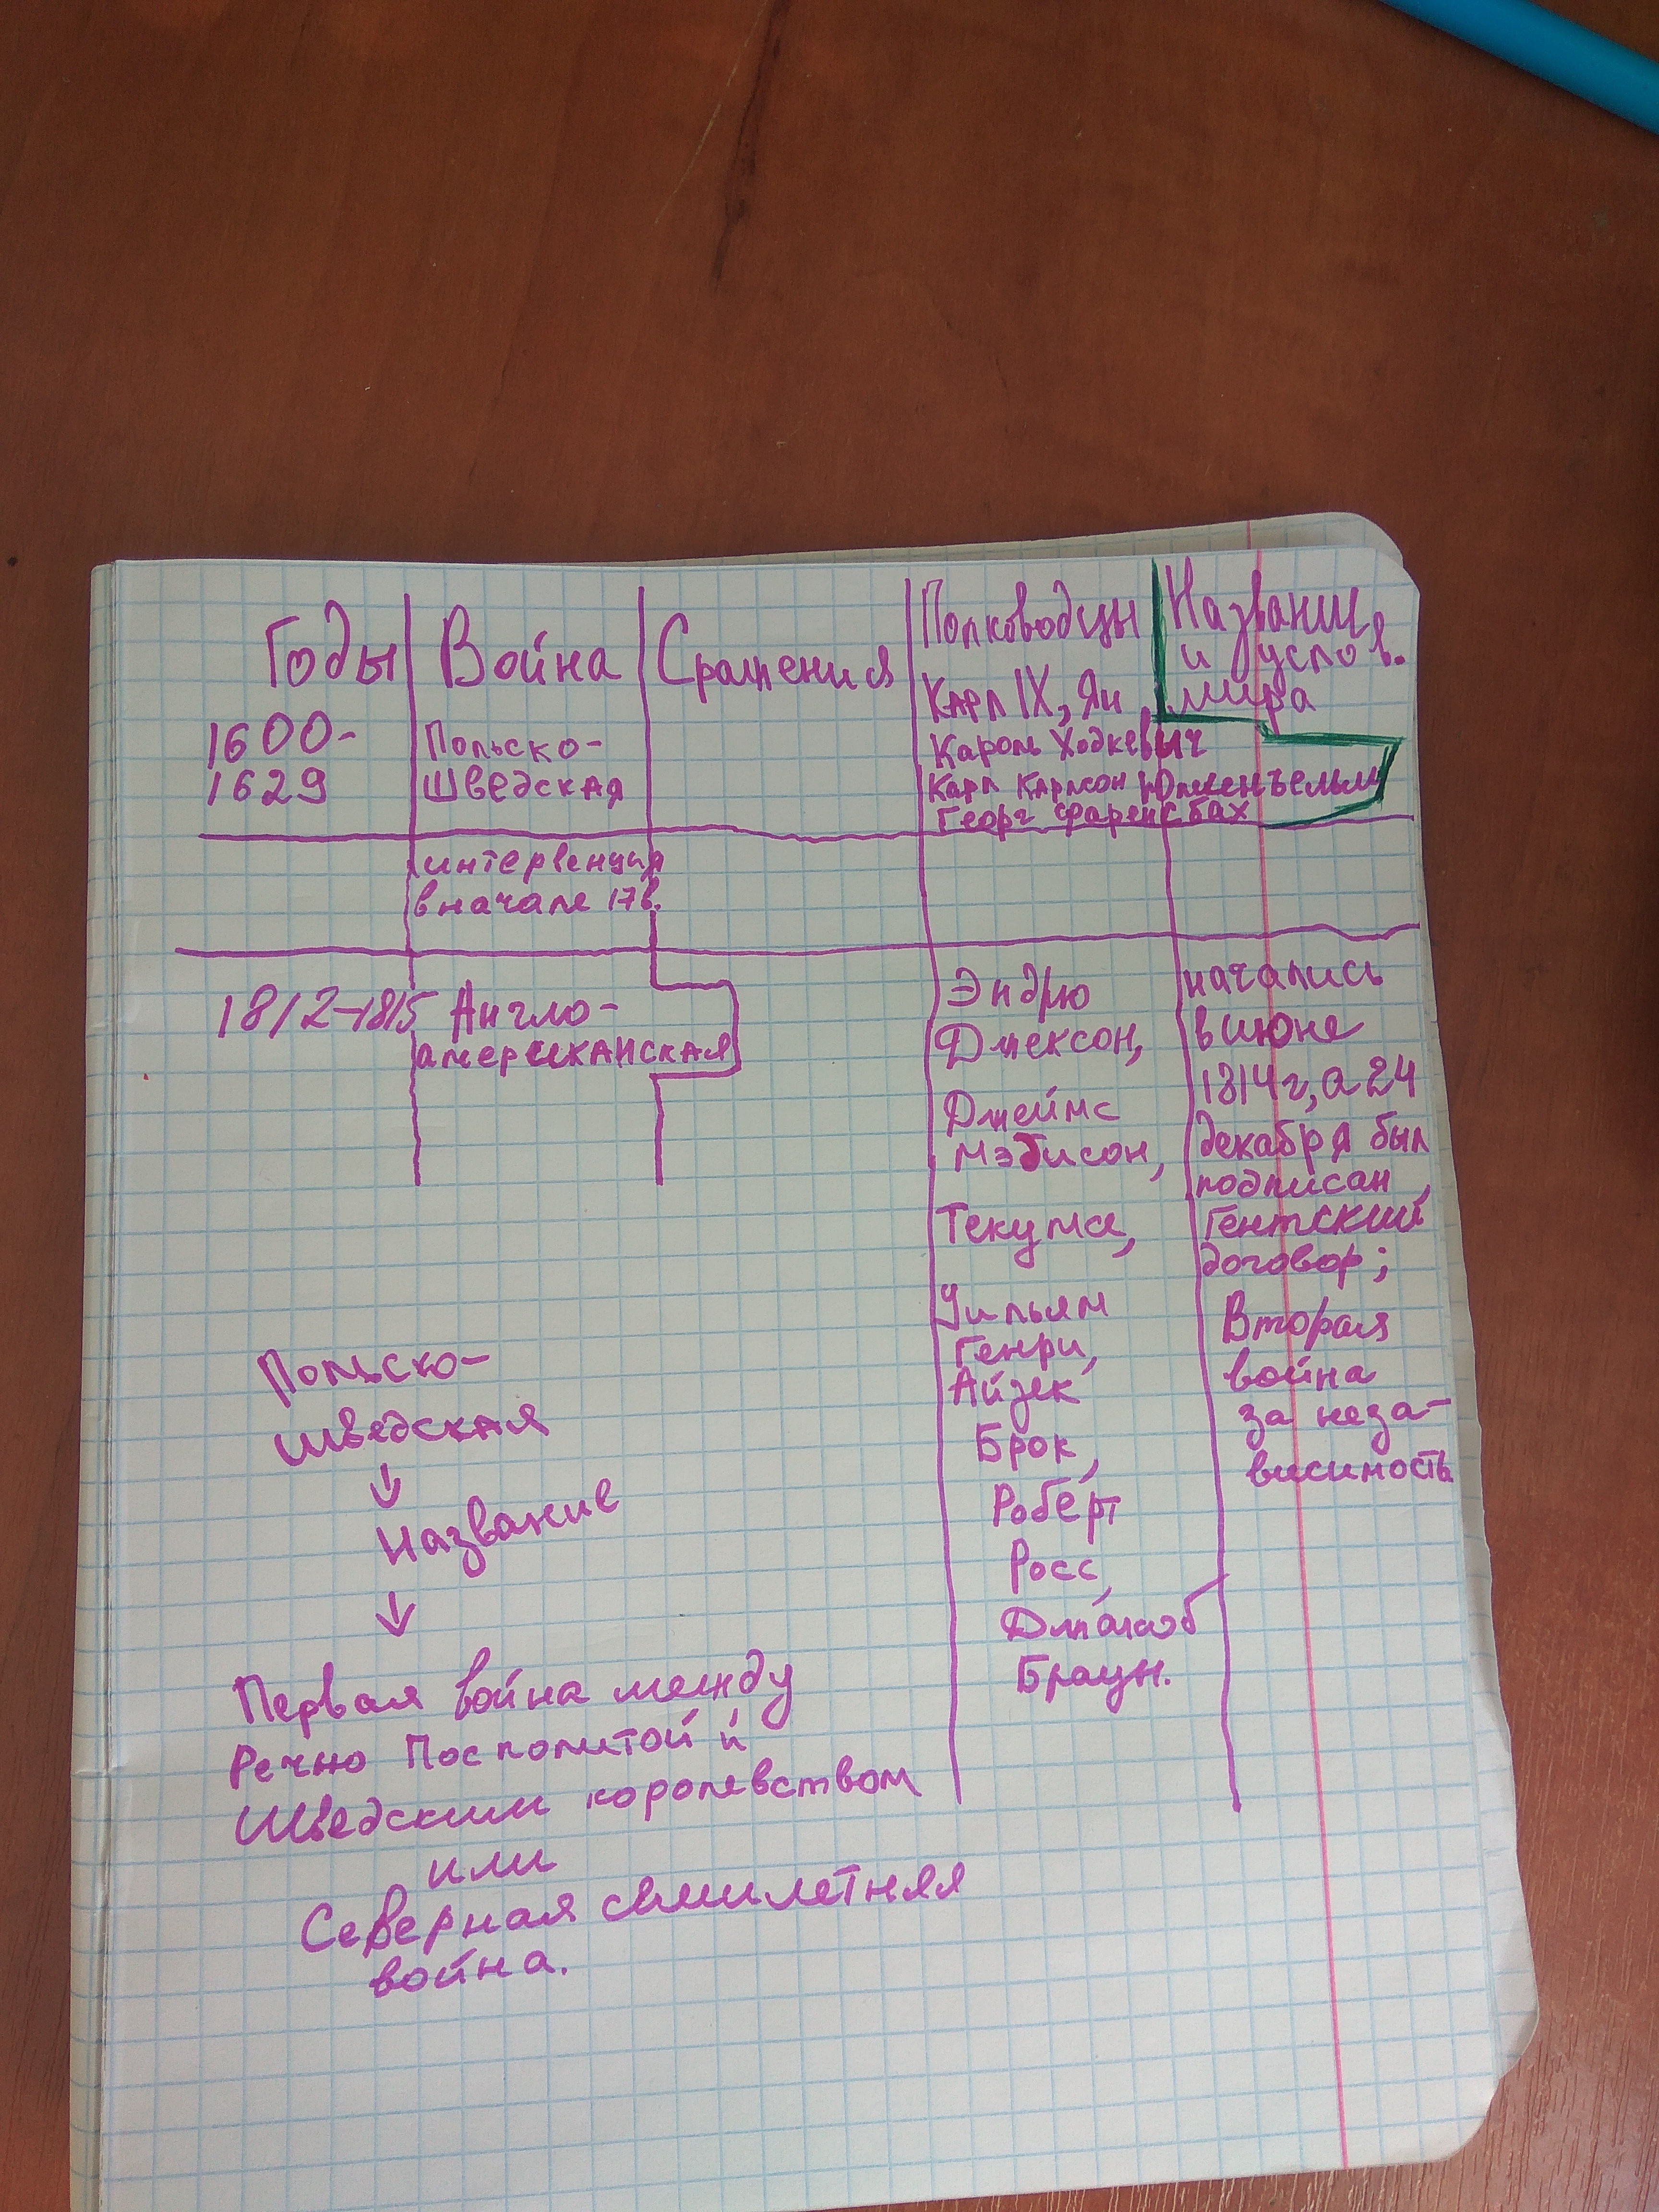 Годы Война Сражения Полководцы Названия
и услов.
мира
1600-
1629
Польско-
Шведская
Карл IX, Ян
Кароль Ходкевич
Карл Карлсон Юлленъельм
Георг Фаренсбах
интервенция
в начале 17в.
1812-1815
Англо-
американская
Эндрю
Джексон,
Джеймс
Мэдисон,
Текумсе,
Уильям
Генри,
Айзек
Брок,
Роберт
Росс,
Джейкоб
Браун.
начались
в июне
1814г, а 24
декабря был
подписан
Гентский
договор;
Вторая
война
за неза-
висимость
Польско-
шведская
↓
Название
↓
Первая война между
Речью Посполитой и
Шведским королевством
или
Северная семилетняя
война.